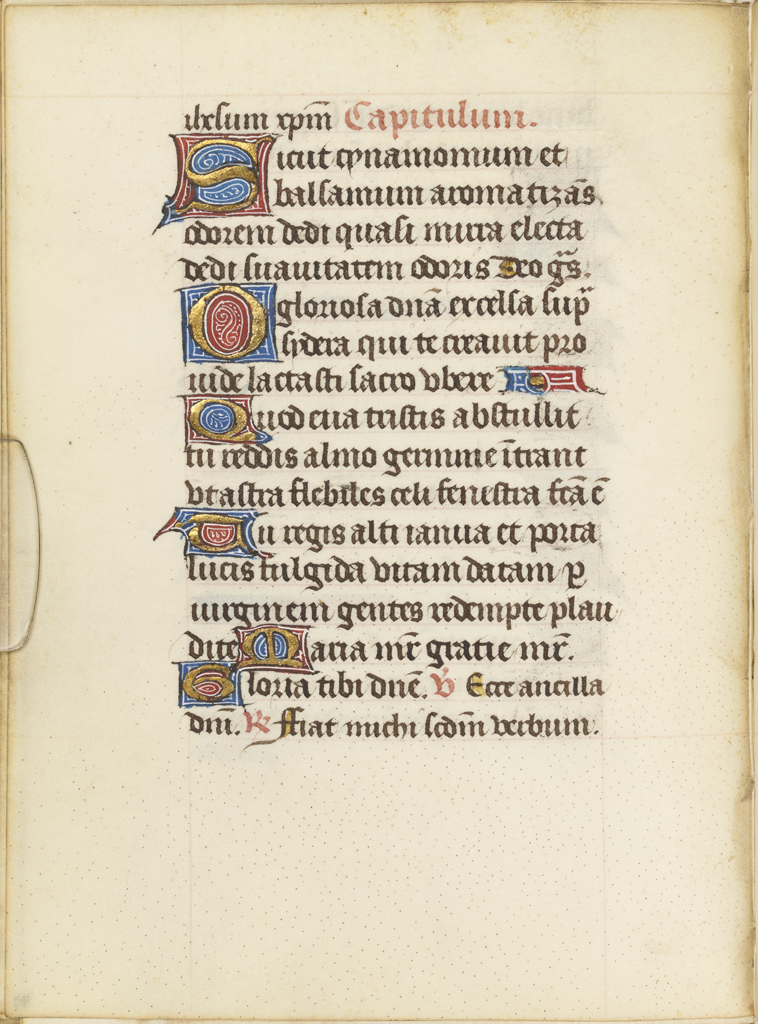 ihesum xp̄m Capitulum.
Sicut cynamomum et
balsamum aromatizās
odorem dedi quasi mirra electa
dedi suauitatem odoris Deo gr̄s.
O gloriosa dn̄a excelsa sup̄
sydera qui te creauit pro
uide lactasti sacro vbere
Quod eua tristis abstullit
tu reddis almo germine ītrant
vt astra flebiles celi fenestra fc̄a ē
Tu regis alti ianua et porta
lucis fulgida vitam datam ꝑ
uirginem gentes redempte plau
dite Maria mr̄ gratie mr̄.
Gloria tibi dn̄e. ℣ Ecce ancilla
dn̄i. ℟ Ffiat michi scdm̄ verbum.